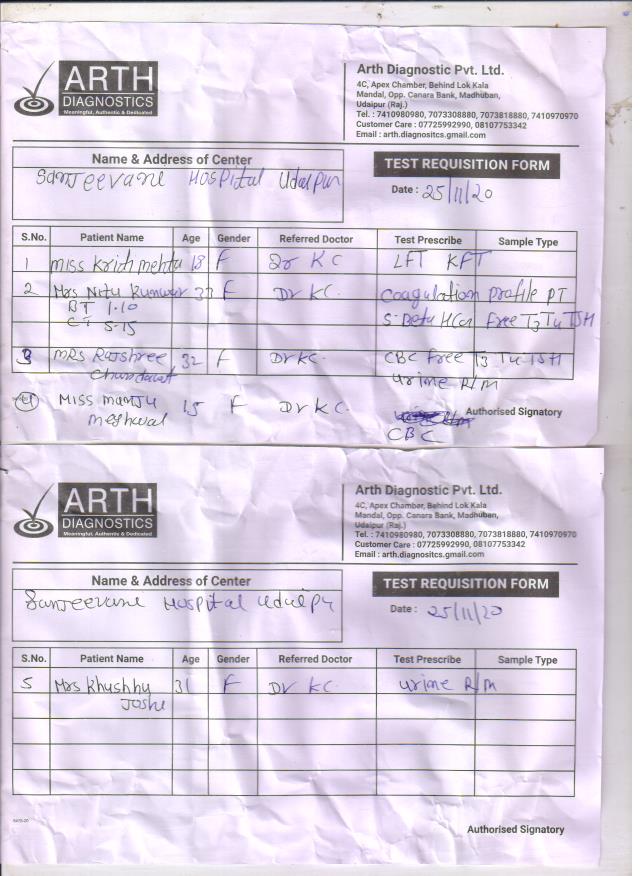 ARTH
DIAGNOSTICS
Meaningful, Authentic & Dedicated
Arth Diagnostic Pvt. Ltd.
4C, Apex Chamber, Behind Lok Kala
Mandal, Opp. Canara Bank, Madhuban,
Udaipur (Raj.)
Tel. : 7410980980, 7073308880, 7073818880, 7410970970
Customer Care : 07725992990, 08107753342
Email : arth.diagnositcs.gmail.com
Name & Address of Center
Sanjeevane Hospital Udaipur
TEST REQUISITION FORM
Date : 25/11/20
S.No. Patient Name Age Gender Referred Doctor Test Prescribe Sample Type
1 Miss Krish mehta 18 F Dr KC LFT KFT
2 Mrs Nitu Kunwar 37 F Dr KC. Coagulation Profile PT
BT 1.10
CT 5.15 S. Beta HCG Free T3 T4 TSH
3 MRS Rajshree 32 F Dr KC. CBC Free T3 T4 TSH
Chundawat Urine R/M
4 Miss Manju 15 F Dr KC.
meghwal CBC
Authorised Signatory
ARTH
DIAGNOSTICS
Meaningful, Authentic & Dedicated
Arth Diagnostic Pvt. Ltd.
4C, Apex Chamber, Behind Lok Kala
Mandal, Opp. Canara Bank, Madhuban,
Udaipur (Raj.)
Tel. : 7410980980, 7073308880, 7073818880, 7410970970
Customer Care : 07725992990, 08107753342
Email : arth.diagnositcs.gmail.com
Name & Address of Center
Sanjeevane Hospital Udaipur
TEST REQUISITION FORM
Date : 25/11/20
S.No. Patient Name Age Gender Referred Doctor Test Prescribe Sample Type
5 Mrs Khushhu 31 F Dr KC. Urine R/M
Joshi
Authorised Signatory